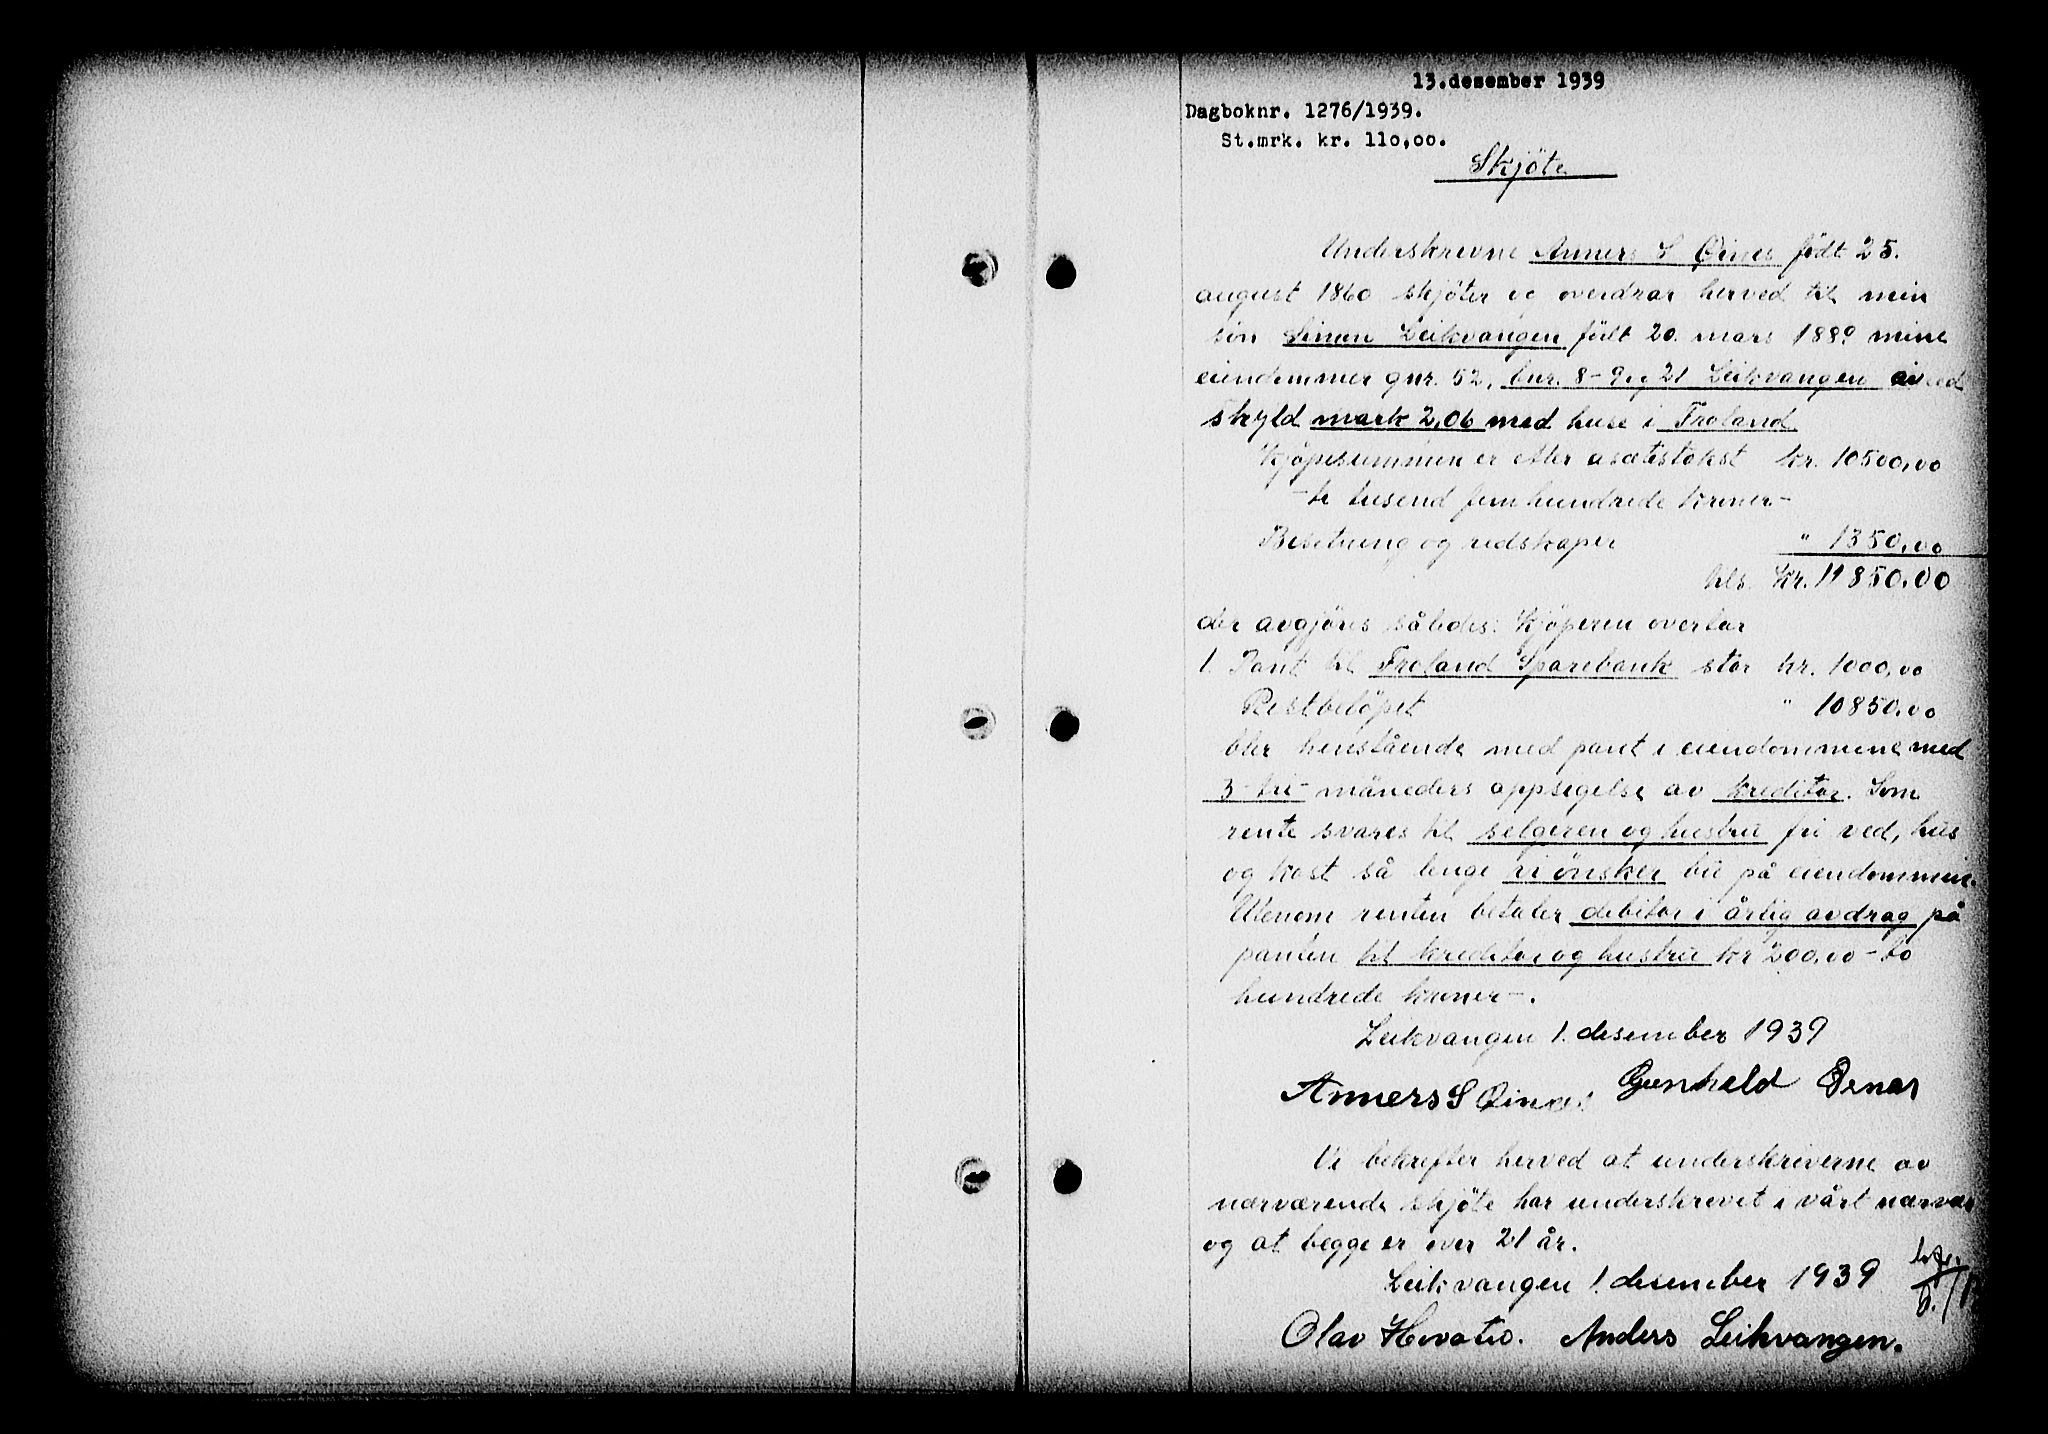 13.desember 1939
Dagboknr. 1276/1939.
St.mrk. kr. 110,00.
Skjöte
Underskrevne Anners S Öines født 25.
august 1860 skjöter og overdrar herved til min
sön Simon Leikvangen födt 20. mars 1889 mine
eiendommer gnr. 52, bnr. 8-9 og 21 Leikvangen av
skyld mark 2,06 med huse i Froland
Kjöpesummen er efter asætestakst kr. 10500,00
-ti tusend fem hundrede kroner-
Besetning og redskaper " 1350,00
tils. kr. 11850,00
der avgjöres således: Kjöperen overtar
1. Pant til Froland Sparebank stor kr. 1000,00
Restbelöpet " 10850,00
blir henstående med pant i eiendommene med
3-tri- måneders oppsigelse av kreditor. Som
rente svares til selgeren og hustru fri ved, hus
og kost så lenge vi önsker bu på eiendommen.
Utenom renten betaler debitor i årlig avdrag på
panten til kreditor og hustru kr 200,00 - to
hundrede kroner-.
Leikvangen 1. desember 1939
Anners S Öines Gunhild Öines
Vi bekrefter herved at underskriverne av
nærværende skjöte har underskrevet i vårt nærvær
og at begge er over 21 år.
Leikvangen 1. desember 1939
Olav Anders Leikvangen.